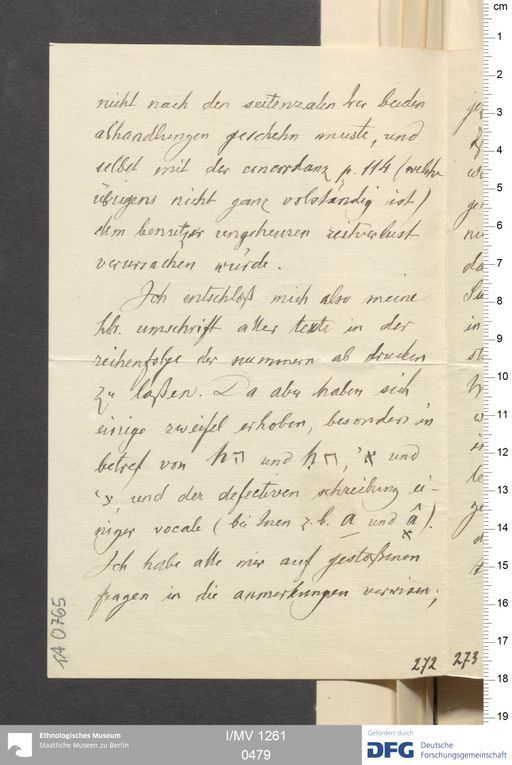 nicht nach den seitenzalen irer beiden
abhandlungen geschehn muste, und
selbst mit der concordanz p. 114 (welche
übrigens nicht ganz volständig ist)
dem benutzer ungeheuren zeitverlust
verursachen würde.
Ich entschloß mich also meine
hbr. umschrift aller texte in der
reihenfolge der nummern ab drucken
zu laßen. Da aber haben sich
einige zweifel erhoben, besonders in
betref von h ה und ḥ ח, ʾ א und
ʿ ע, und der defectiven schreibung ei-
niger vocale (bei Inen z. b. a und â א).
Ich habe alle mir auf gestoßenen
fragen in die anmerkungen verwisen;
272 273
VA 0765
cm
1
2
3
4
5
6
7
8
9
10
11
12
13
14
15
16
17
18
19
Ethnologisches Museum
Staatliche Museen zu Berlin
I/MV 1261
0479
Gefördert durch
DFG Deutsche
Forschungsgemeinschaft